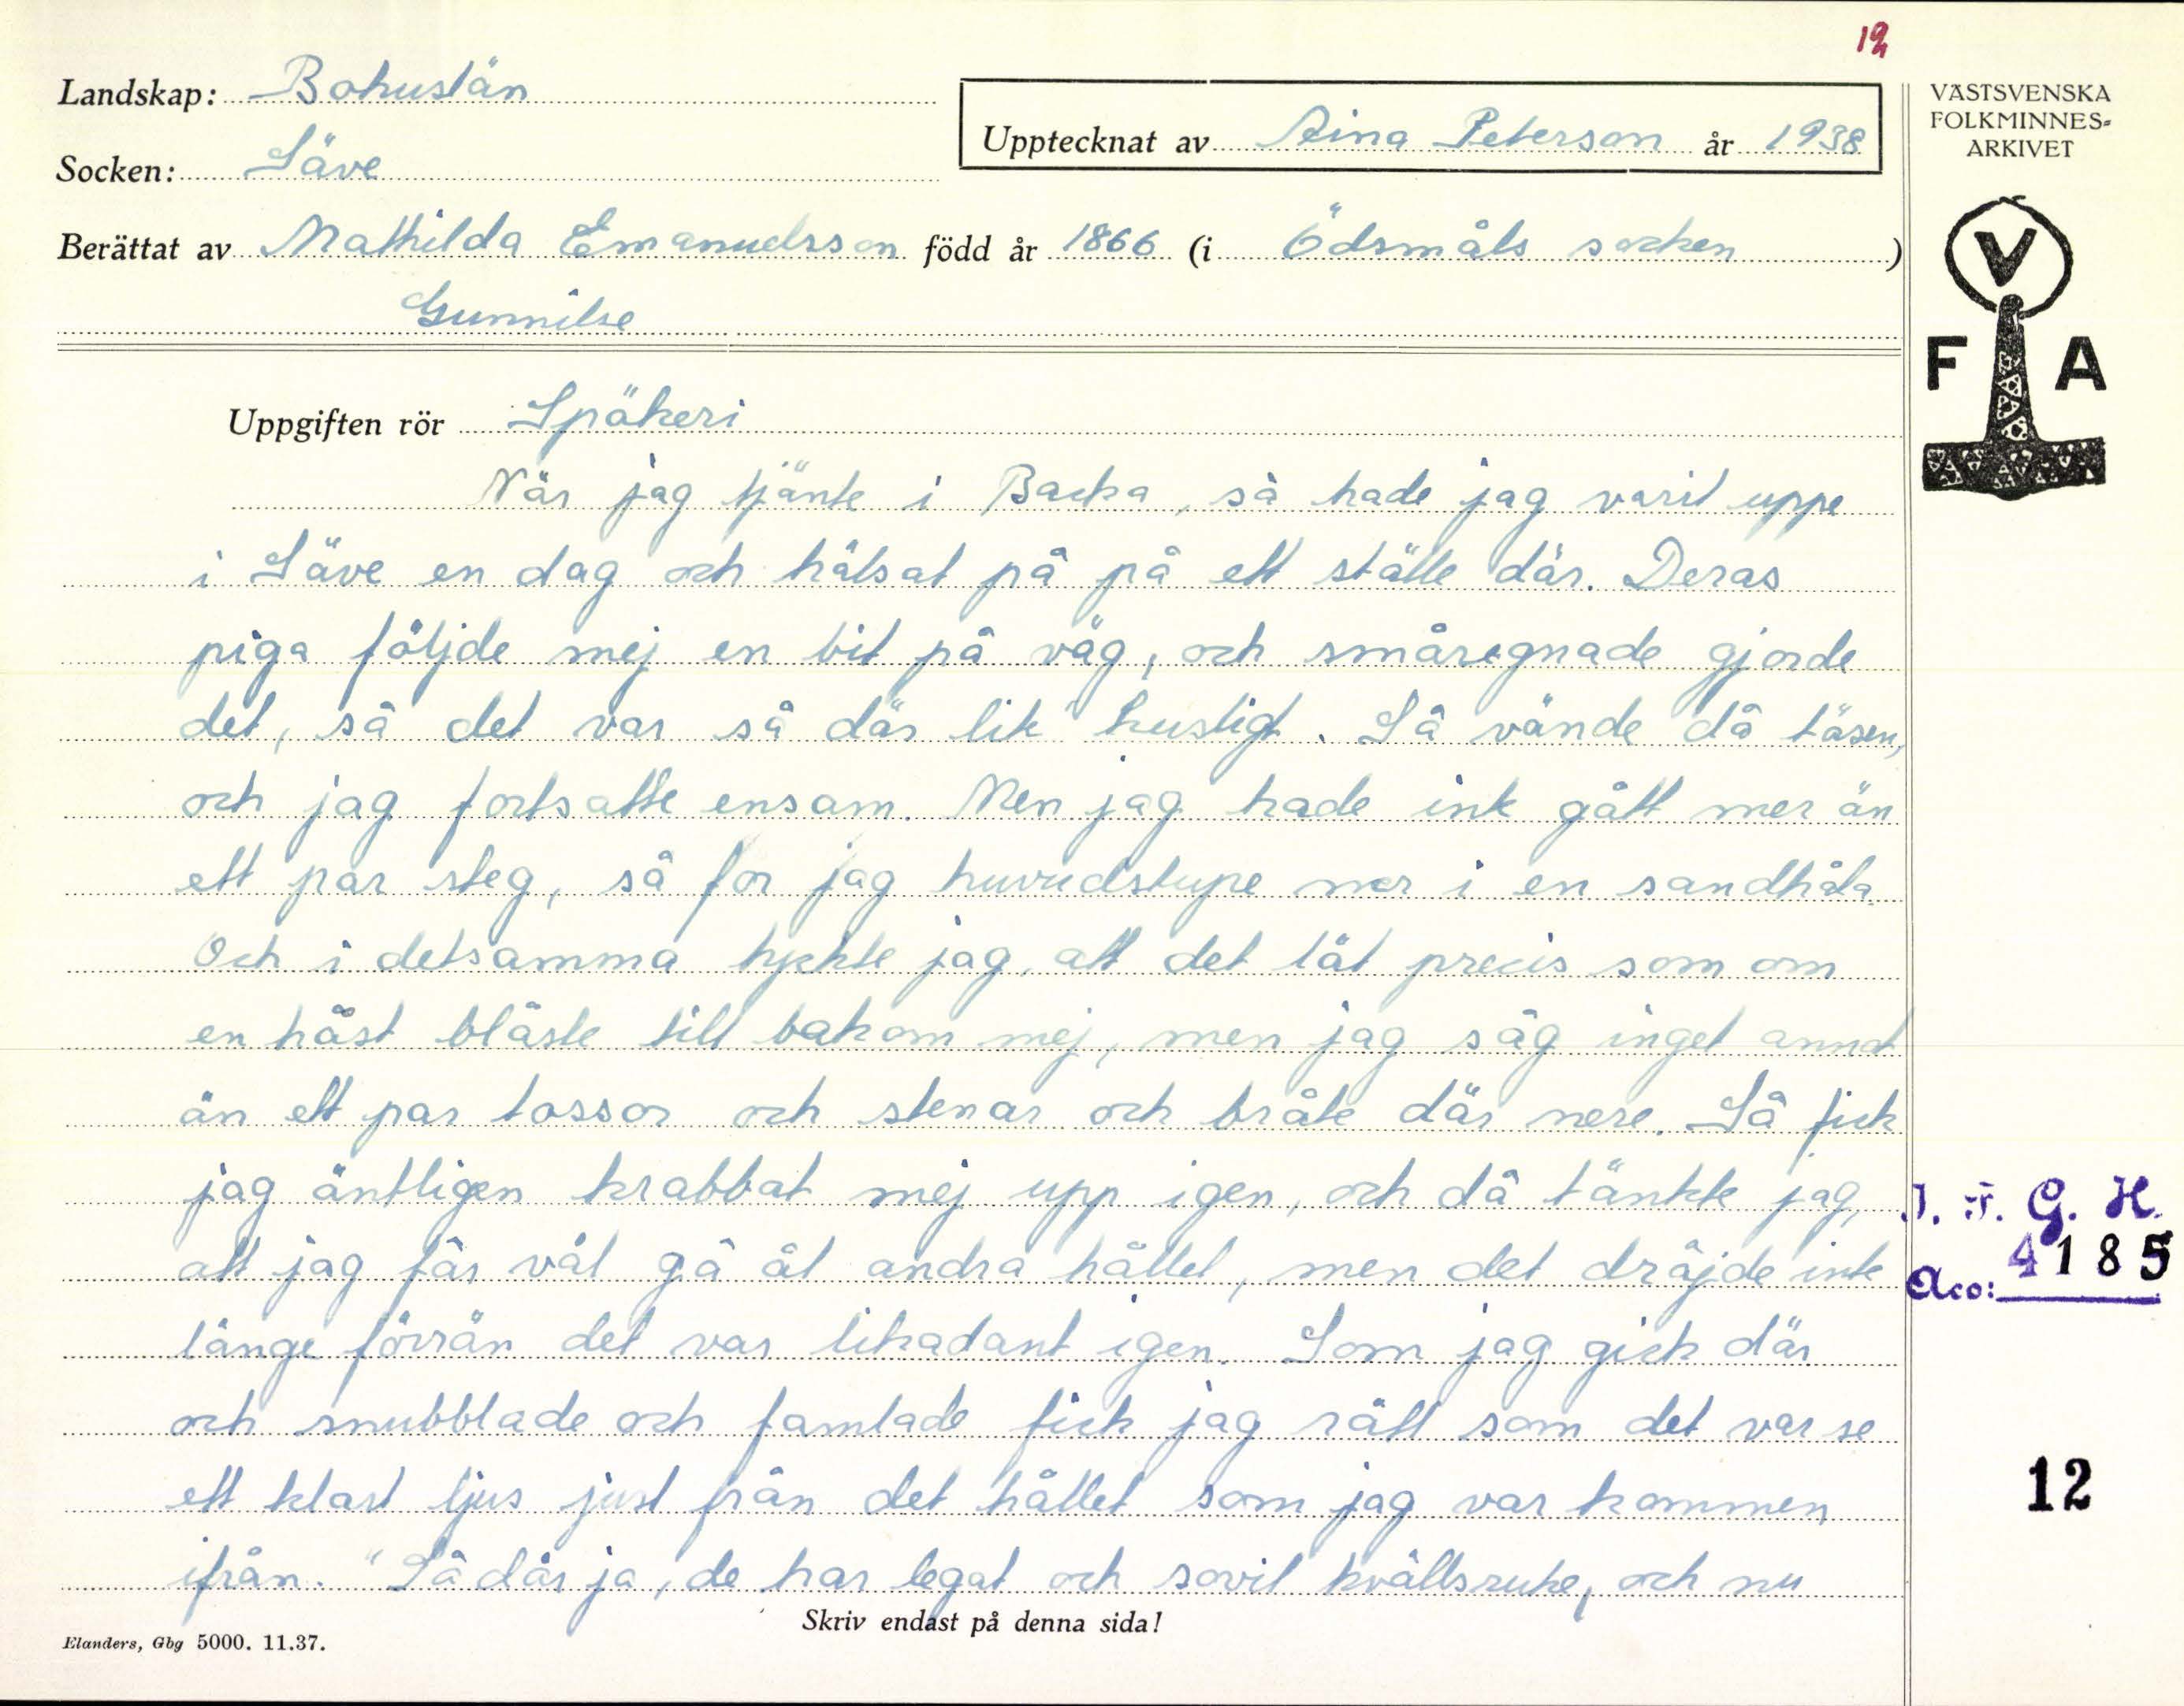 12
Landskap: Bohuslän
Upptecknat av Aina Peterson år 1938
Socken: Säve
Berättat av Mathilda Emanuelsson född år 1866 (i Ödsmåls socken)
Gunnilse
VÄSTSVENSKA
FOLKMINNES-
ARKIVET
V
F A
Uppgiften rör Spökeri
När jag tjänte i Backa, så hade jag varit uppe
i Säve en dag och hälsat på på ett ställe där. Deras
piga följde mej en bit på väg, och småregnade gjorde
det, så det var så där lite kusligt. Så vände då tösen,
och jag fortsatte ensam. Men jag hade inte gått mer än
ett par steg, så for jag huvudstupe ner i en sandhåla.
Och i detsamma tyckte jag, att det lät precis som om
en häst blåste till bakom mej, men jag såg inget annat
än ett par tossor och stenar och bråte där nere. Så fick
jag äntligen krabbat mej upp igen, och då tänkte jag,
att jag får väl gå åt andra hållet, men det dröjde inte
länge förrän det var likadant igen. Som jag gick där
och snubblade och famlade fick jag rätt som det var se
ett klart ljus just från det hållet som jag var kommen
ifrån. "Så där ja, de har legat och sovit kvällsruke, och nu
I. F. G. H.
Acc: 4185
12
Skriv endast på denna sida!
Elanders, Gbg 5000. 11.37.